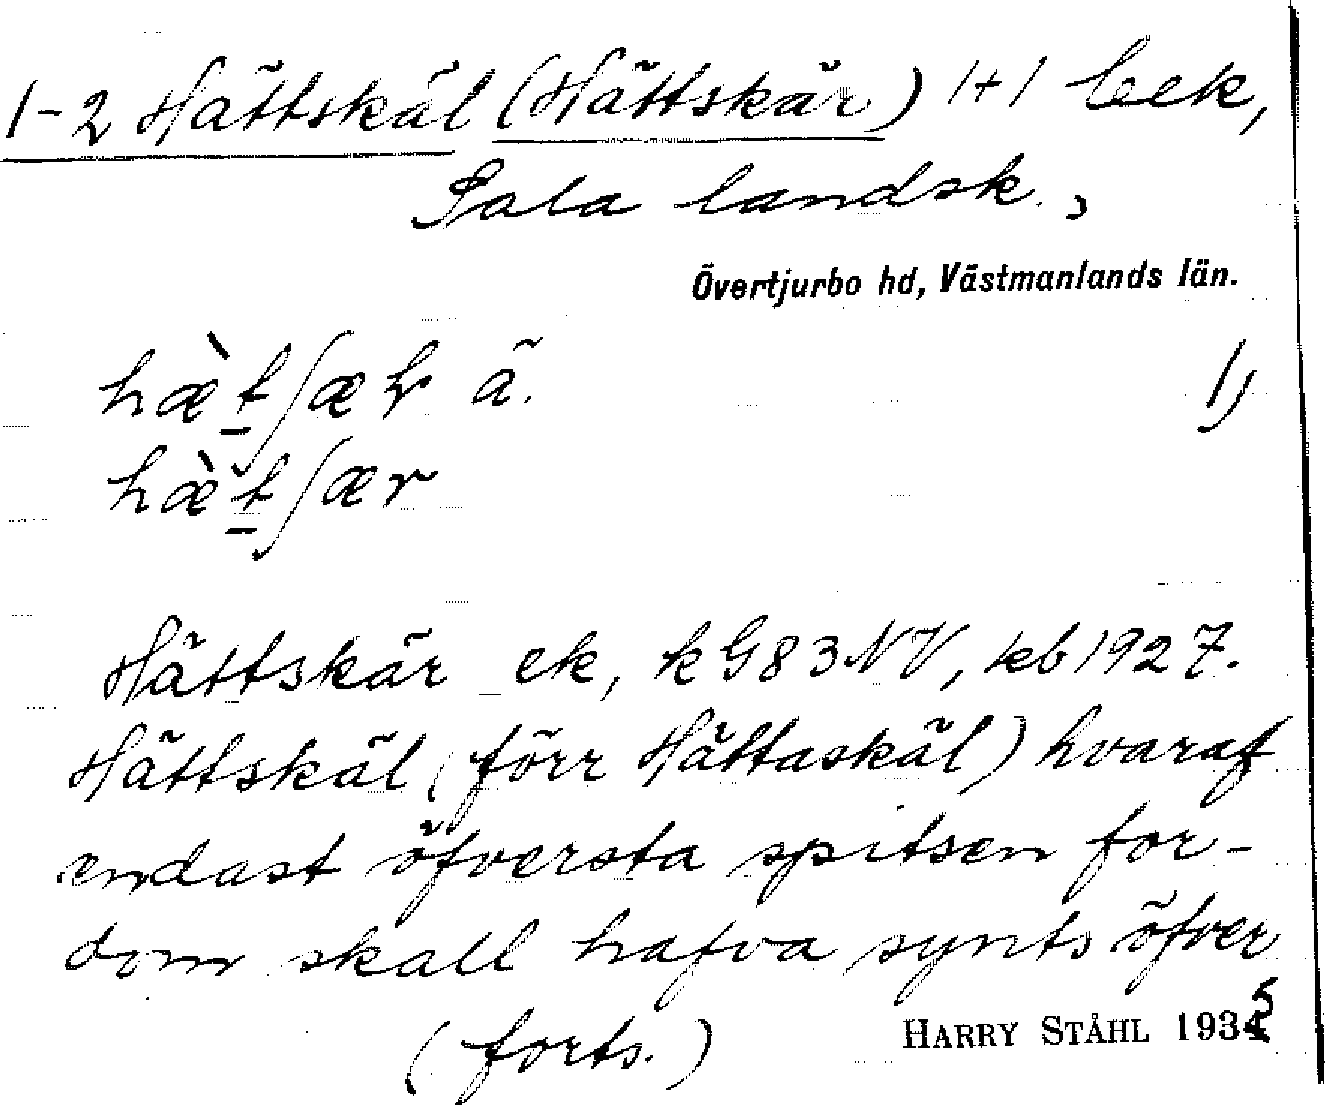 1-2 Hättskäl (Hättskär) 1+1 bek,
Sala landsk.,
Övertjurbo hd, Västmanlands län.
hæ̀t̠ʃæɽ ä. 1)
hæ̀t̠ʃær
Hättskär ek, kG83NV, kb1927.
Hättskäl (förr Hättaskäl) hvaraf
endast öfversta spitsen for-
dom skall hafva synts öfver
(forts.) HARRY STÅHL 1935